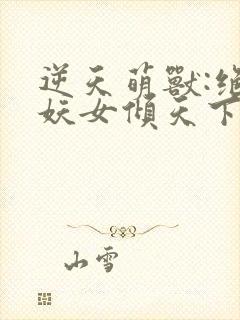 逆天萌獸:絕
妖女傾天下
山雪